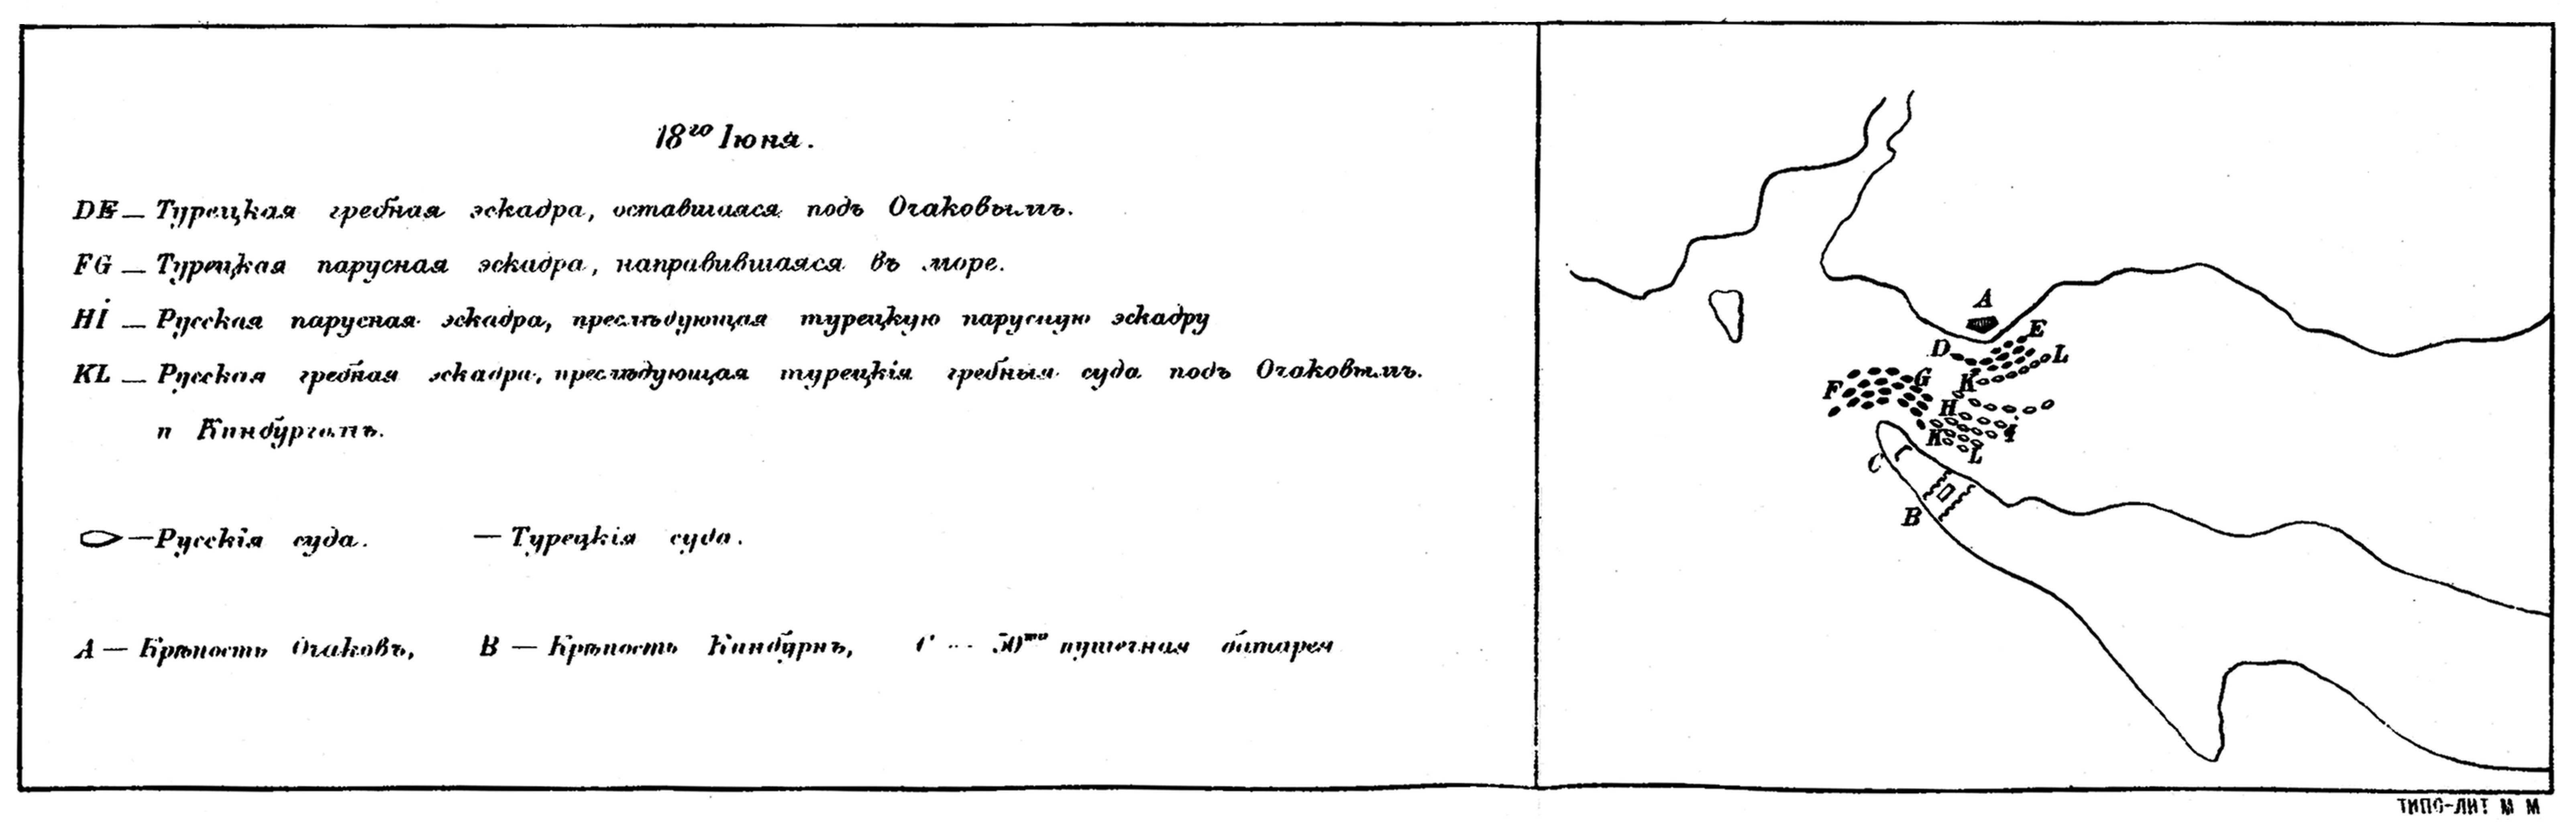 18го Іюня.
DE — Турецкая гребная эскадра, оставшаяся подъ Очаковымъ.
FG — Турецкая парусная эскадра, направившаяся въ море.
HI — Русская парусная эскадра, преслѣдующая турецкую парусную эскадру
KL — Русская гребная эскадра, преслѣдующая турецкія гребныя суда подъ Очаковымъ.
и Кинбурномъ.
— Русскія суда. — Турецкія суда.
A — Крѣпость Очаковъ, B — Крѣпость Кинбурнъ, C — 50ти пушечная батарея
A
E
D
L
G
K
F
H
I
K
L
C
B
ТИПО-ЛИТ М М